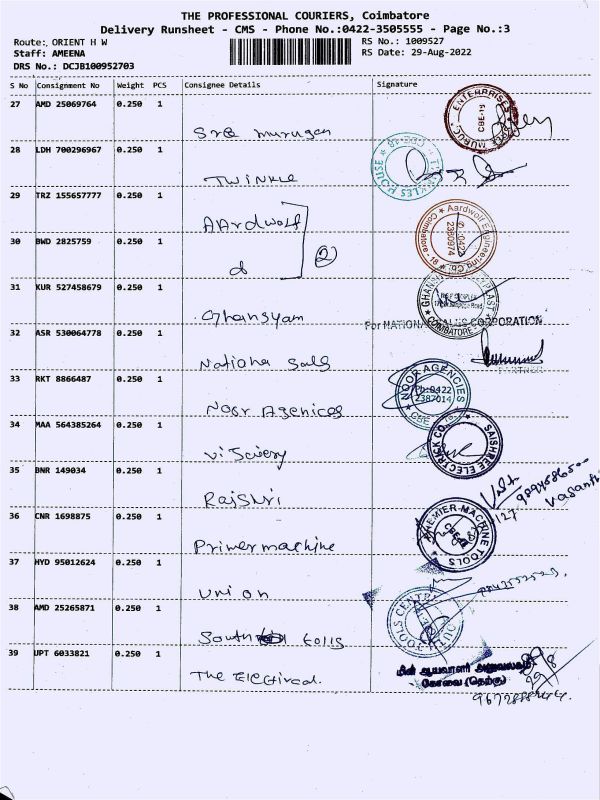 THE PROFESSIONAL COURIERS, Coimbatore
Delivery Runsheet - CMS - Phone No.:0422-3505555 - Page No.:3
Route: ORIENT H W
RS No.: 1009527
Staff: AMEENA
RS Date: 29-Aug-2022
DRS No.: DCJB100952703
S No Consignment No Weight PCS Consignee Details Signature
27 AMD 25069764 0.250 1
Sree murugan
ENTERPRISES CBE-18
28 LDH 700296967 0.250 1
TWINKLE
HOUSE CBE-18
29 TRZ 155657777 0.250 1
AArdwolf
Aardwolf Engineering Co. ✆:0422 2380974 Coimbatore - 18
30 BWD 2825759 0.250 1
d
2
31 KUR 527458679 0.250 1
Ghansyam
COIMBATORE
32 ASR 530064778 0.250 1
For NATIONAL SALES CORPORATION
Nationa Sals
PARTNER
33 RKT 8866487 0.250 1
Noor Agenices
NOOR AGENCIES Ph:0422 2387014 CBE
34 MAA 564385264 0.250 1
SAISHREE ELECTRICK CO.
35 BNR 149034 0.250 1
RajShri
Vasanth
36 CNR 1698875 0.250 1
Primer machine
PREMIER MACHINE TOOLS
37 HYD 95012624 0.250 1
union
38 AMD 25265871 0.250 1
South Tolls
TOOLS CENTRE
39 UPT 6033821 0.250 1
The Electircal.
மின் ஆய்வாளர் அலுவலகம்
கோவை (தெற்கு)
29/8